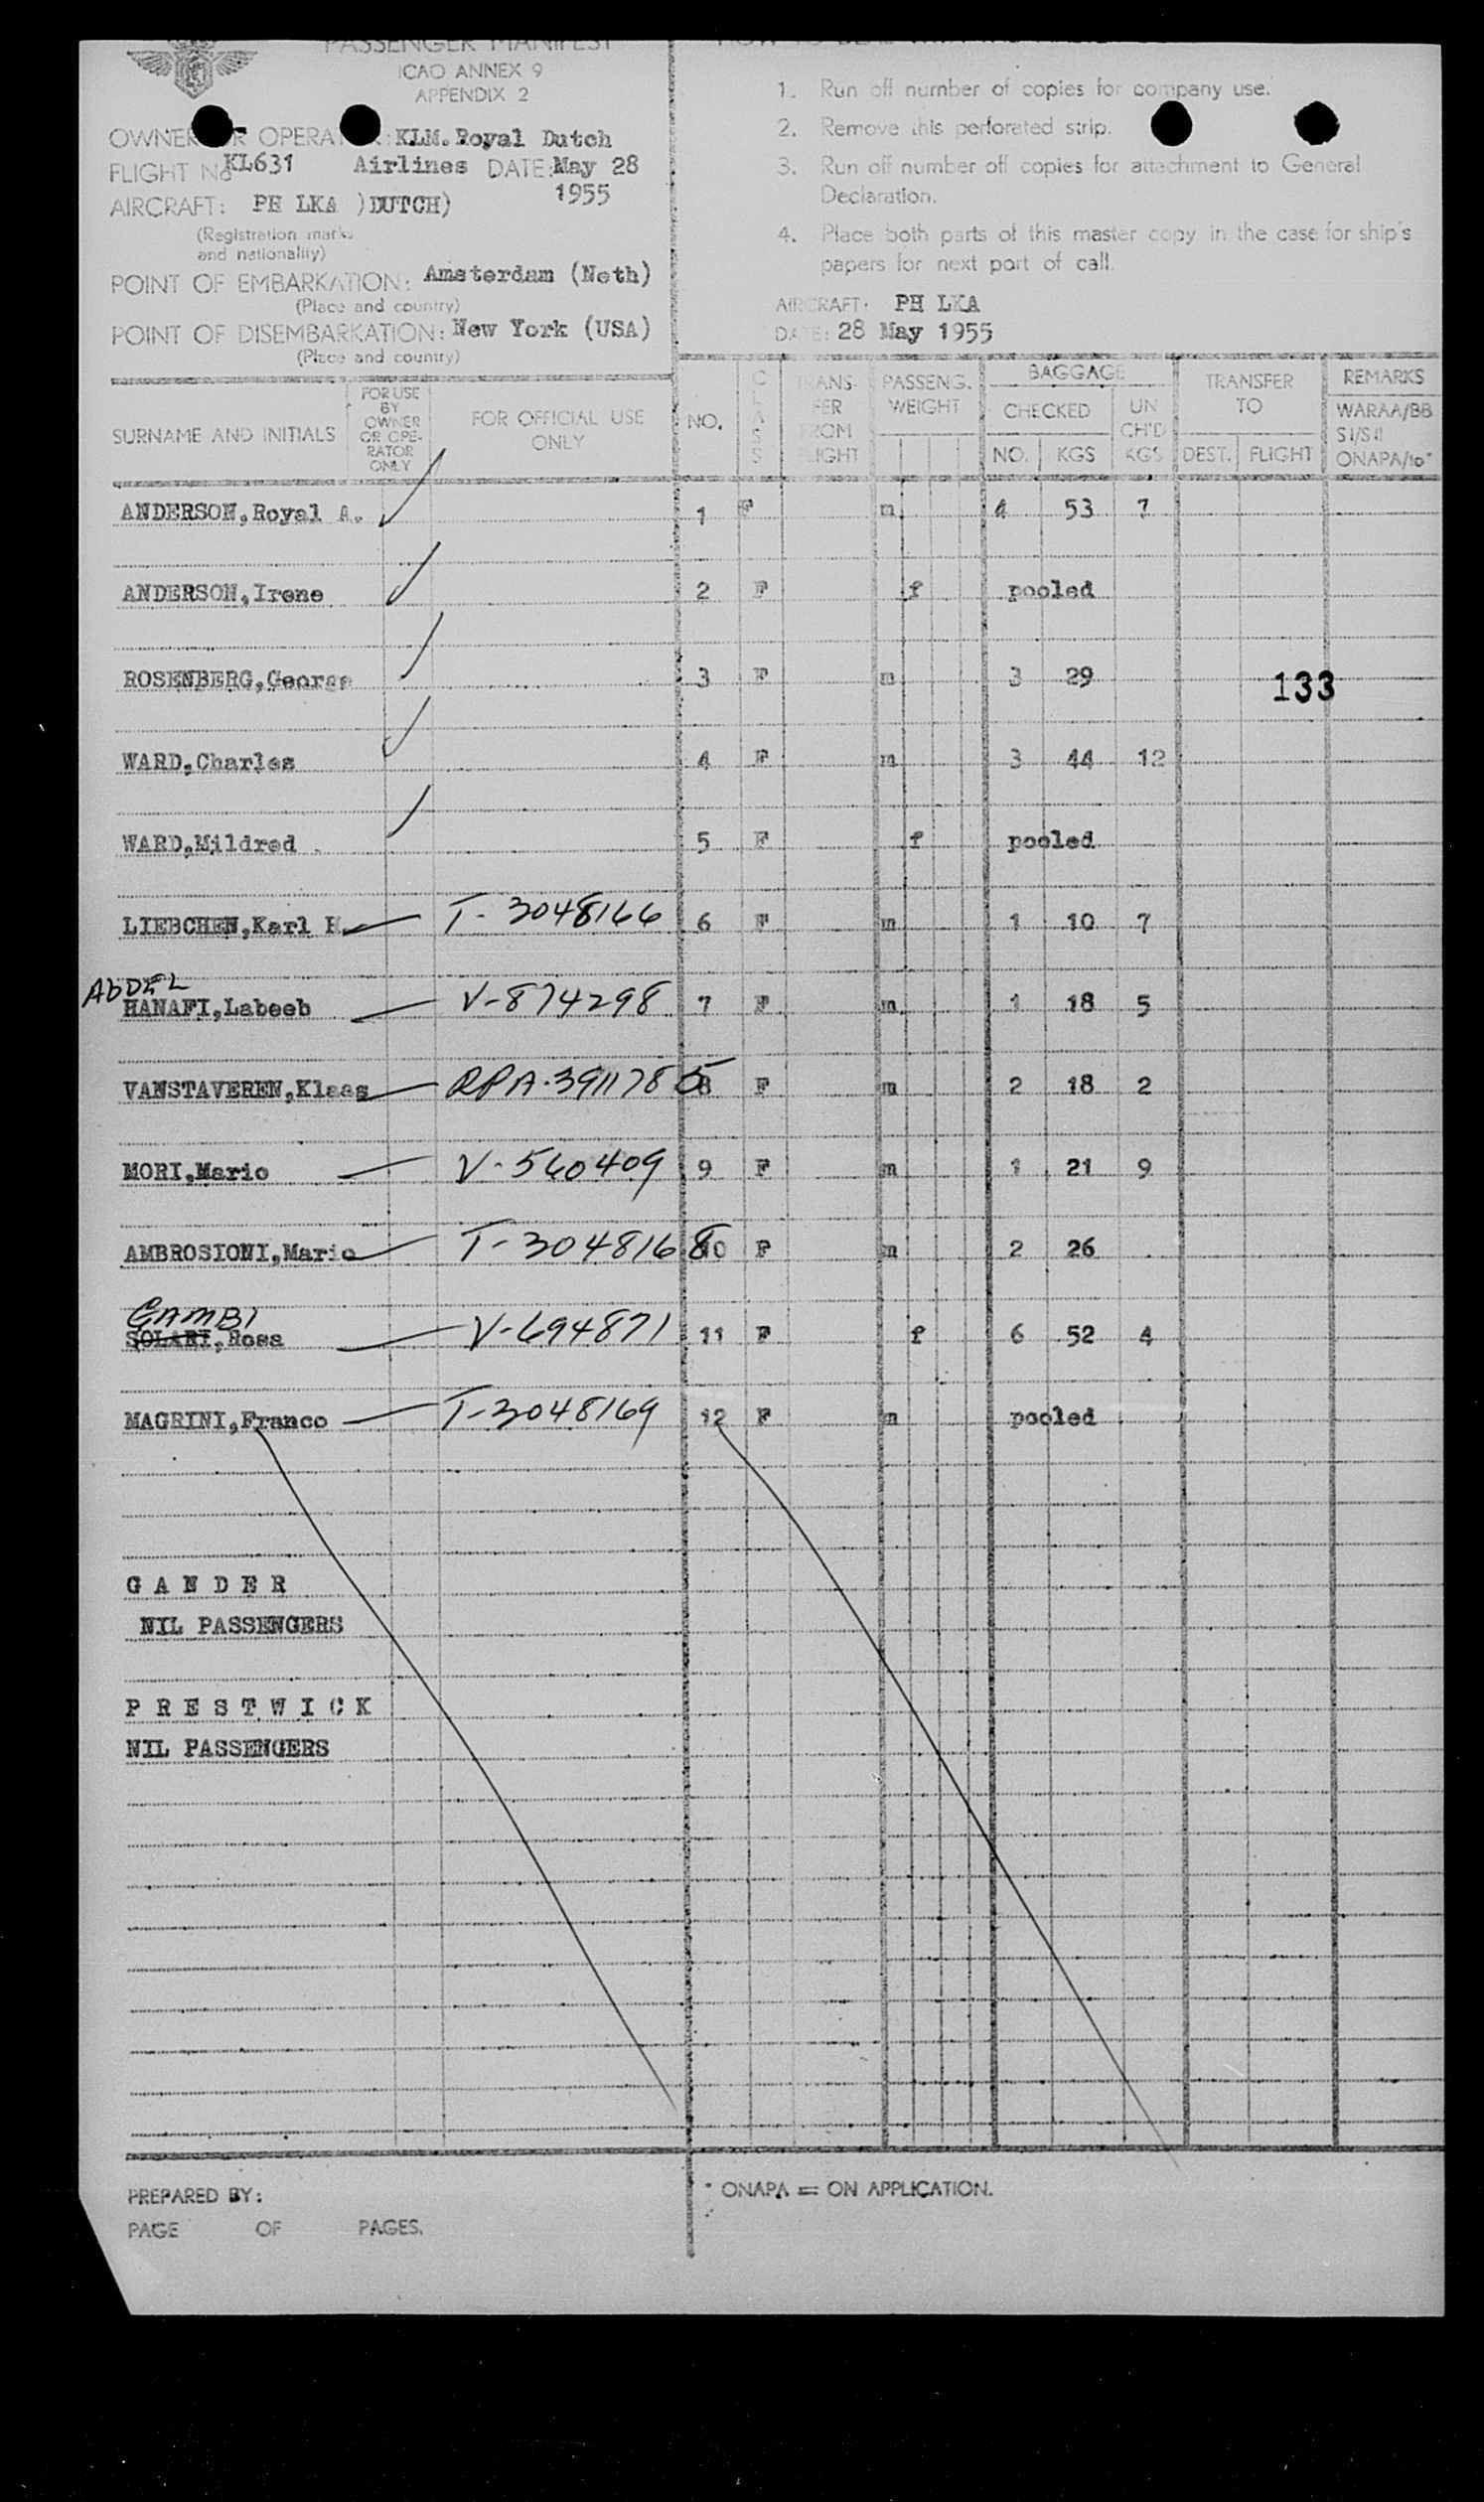 PASSENGER MANIFEST
ICAO ANNEX 9
APPENDIX 2
OWNER OR OPERATOR: KLM. Royal Dutch
FLIGHT No KL631 Airlines DATE: May 28
1955
AIRCRAFT: PH LKA )DUTCH)
(Registration marks
and nationality)
POINT OF EMBARKATION: Amsterdam (Neth)
(Place and country)
POINT OF DISEMBARKATION: New York (USA)
(Place and country)
1. Run off number of copies for company use.
2. Remove this perforated strip.
3. Run off number off copies for attachment to General
Declaration.
4. Place both parts of this master copy in the case for ship's
papers for next port of call.
AIRCRAFT: PH LKA
DATE: 28 May 1955
SURNAME AND INITIALS
FOR USE
BY
OWNER
OR OPE-
RATOR
ONLY
FOR OFFICIAL USE
ONLY
NO.
CLASS
TRANS-
FER
FROM
FLIGHT
PASSENG.
WEIGHT
BAGGAGE
CHECKED
NO. KGS
UN
CH'D
KGS
TRANSFER
TO
DEST. FLIGHT
REMARKS
WARAA/BB
SI/SII
ONAPA/to*
ANDERSON,Royal A. 1 F m 4 53 7
ANDERSON,Irene 2 F f pooled
ROSENBERG,George 3 F m 3 29
133
WARD,Charles 4 F m 3 44 12
WARD,Mildred 5 F f pooled
LIEBCHEN,Karl H. T-3048166 6 F m 1 10 7
ABDEL
HANAFI,Labeeb V-874298 7 F m 1 18 5
VANSTAVEREN,Klaas RPA-3911785 8 F m 2 18 2
MORI,Mario V-560409 9 F m 1 21 9
AMBROSIONI,Mario T-3048168 10 F m 2 26
GAMBI
SOLARI,Rosa V-694871 11 F f 6 52 4
MAGRINI,Franco T-3048169 12 F m pooled
G A N D E R
NIL PASSENGERS
P R E S T W I C K
NIL PASSENGERS
PREPARED BY:
PAGE OF PAGES.
* ONAPA = ON APPLICATION.